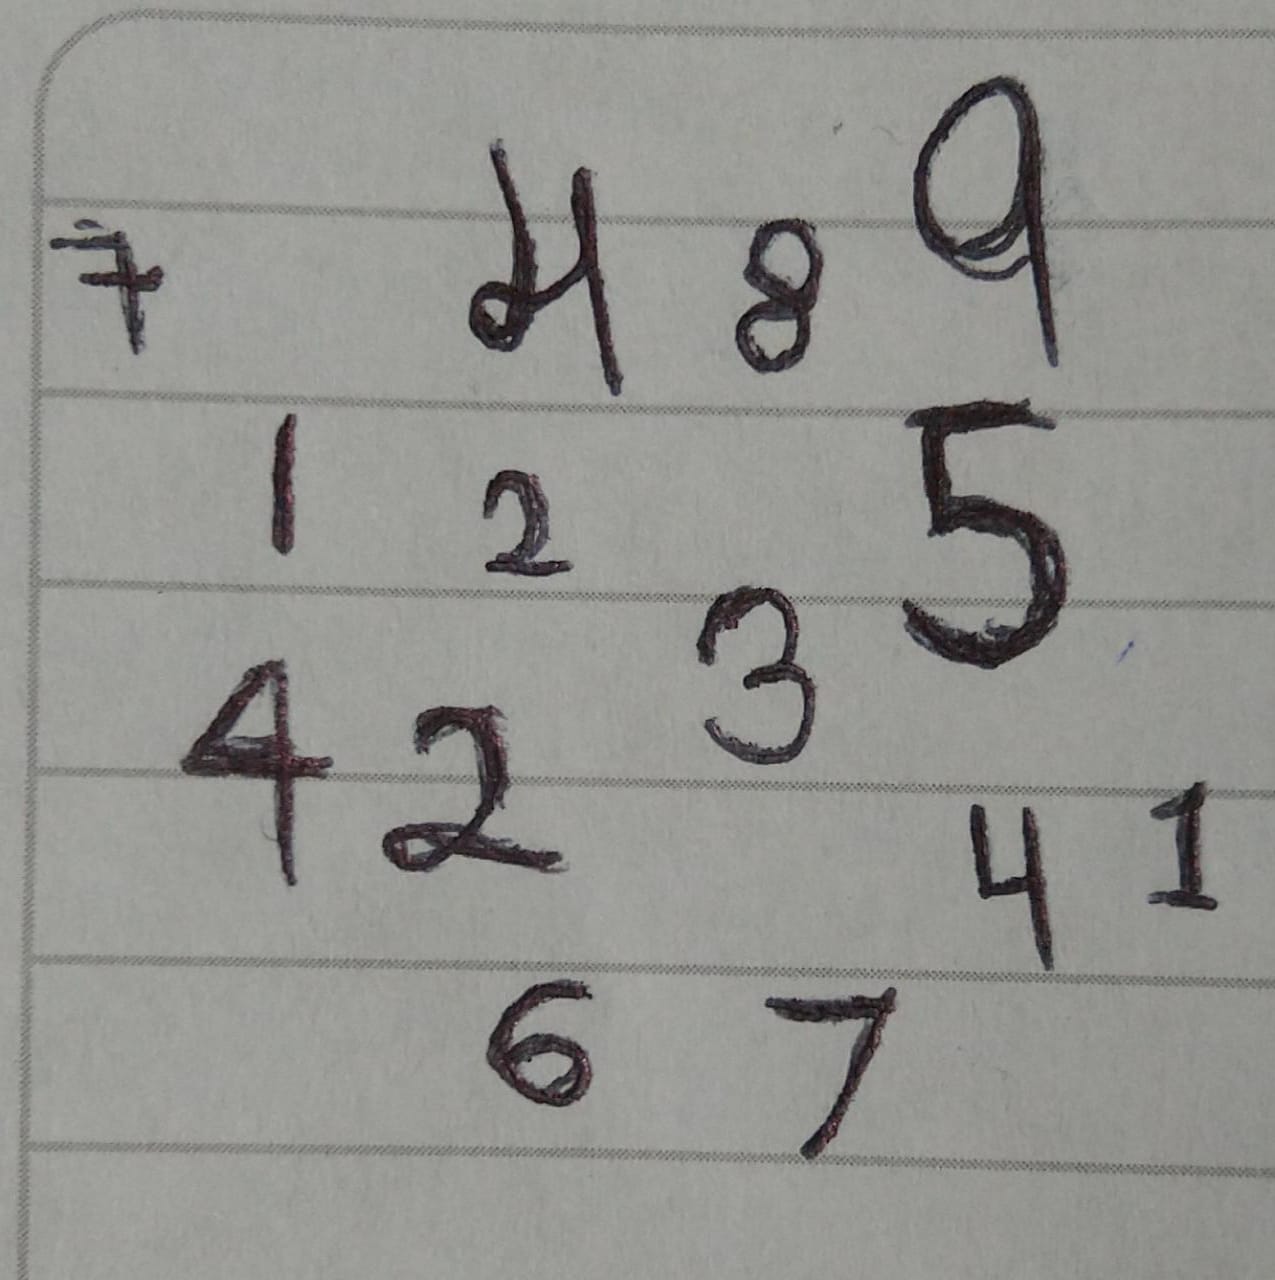 7 4 8 9
1 2 5
3
4 2
4 1
6 7